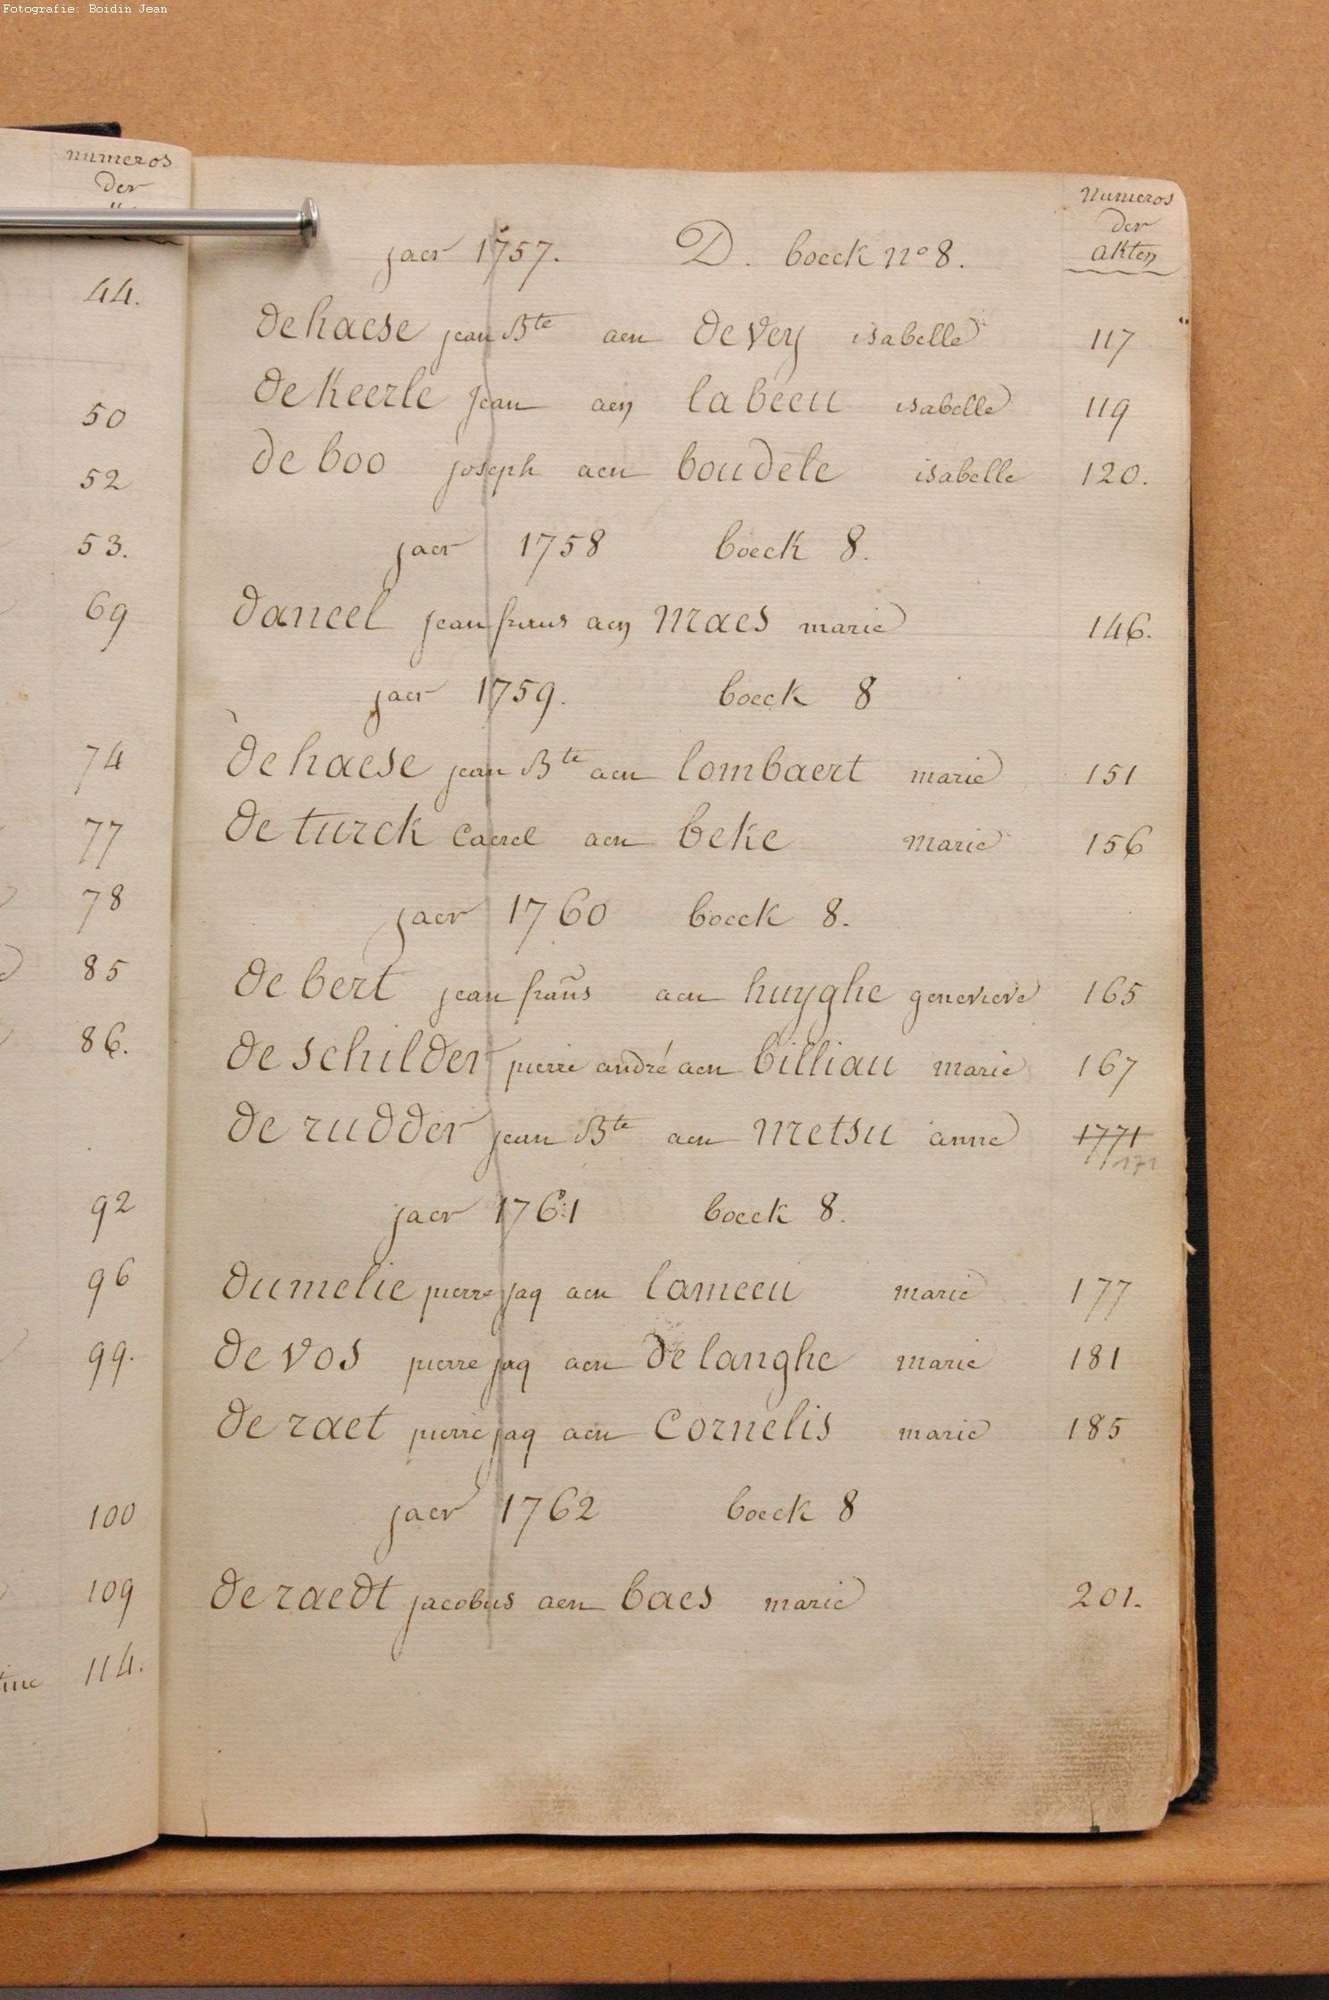 Fotografie: Boidin Jean
numeros
der
44.
50
52
53.
69
74
77
78
85
86.
92
96
99.
100
109
114.
numeros
der
akten
jaer 1757. D. boeck n° 8.
dehaese jean Bte aen devey isabelle 117
dekeerle jean aen labeeu isabelle 119
de boo joseph aen boudele isabelle 120.
jaer 1758 boeck 8.
daneel jean frans aen maes marie 146.
jaer 1759. boeck 8
dehaese jean Bte aen lombaert marie 151
de turck Caerel aen beke marie 156
jaer 1760 boeck 8.
de bert jean frañs aen huyghe genevieve 165
de schilder pierre andré aen billiau marie 167
de rudder jean Bte aen metsu anne 1771
171
jaer 1761 boeck 8.
dumelie pierre jaq aen lameeu marie 177
de vos pierre jaq aen de langhe marie 181
de raet pierre jaq aen Cornelis marie 185
jaer 1762 boeck 8
de raedt jacobus aen baes marie 201.